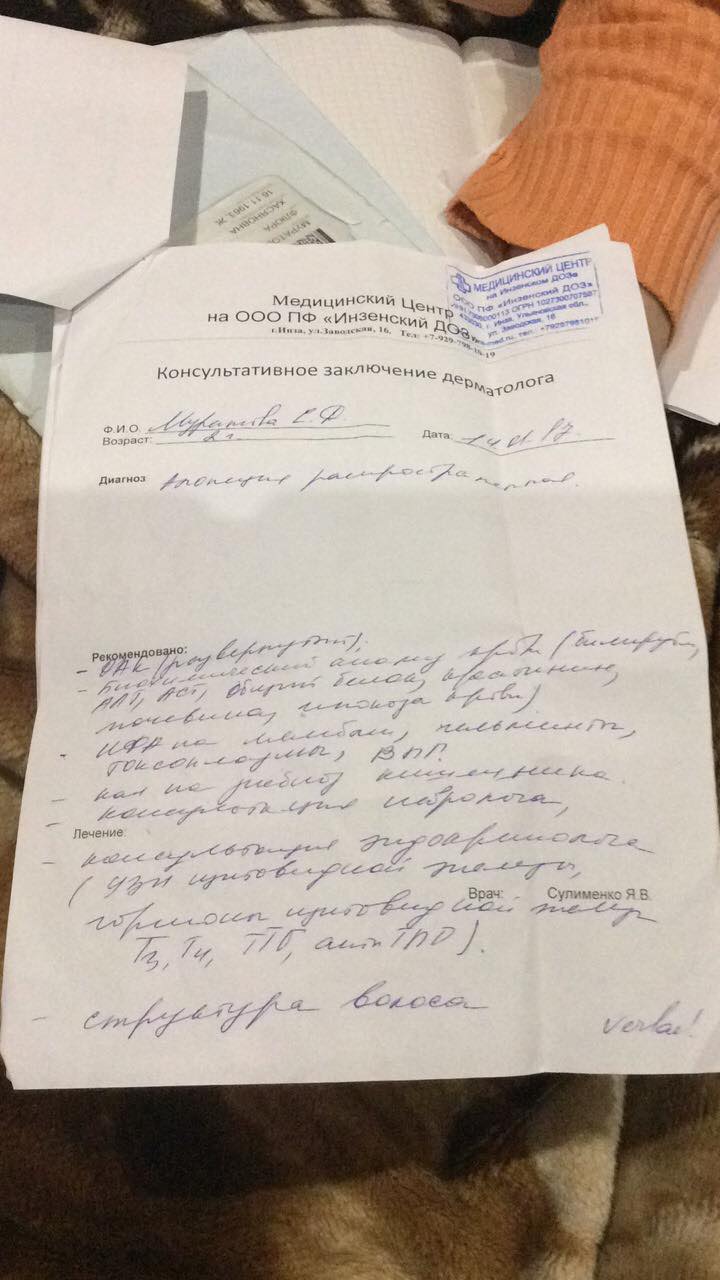 16.11.1961 Ж
ХАСЯНОВНА
ФЛЮРА
МУРАТО
МЕДИЦИНСКИЙ ЦЕНТР
на Инзенском ДОЗе
ООО ПФ «Инзенский ДОЗ»
ОГРН 1027300707587
г. Инза, Ульяновская обл.,
ул. Заводская, 16
Медицинский Центр
на ООО ПФ «Инзенский ДОЗ»
г.Инза, ул.Заводская, 16. Тел: +7-929-798-10-19
Консультативное заключение дерматолога
Ф.И.О. Муратова С.Ф.
Возраст: 2 г. Дата: 14
Диагноз Алопеция распространенная.
Рекомендовано:
- ОАК (развернутый);
- Биохимический анализ крови (билирубин,
АЛТ, АСТ, общий белок, креатинин,
мочевина, глюкоза крови)
- ИФА на лямблии, гельминты,
токсоплазмы, ВПГ.
- кал на дисбиоз кишечника.
- консультация невролога,
Лечение:
- консультация эндокринолога
(УЗИ щитовидной железы,
Врач: Сулименко Я.В.
гормоны щитовидной желез
Т3, Т4, ТТГ, анти ТПО).
- структура волоса